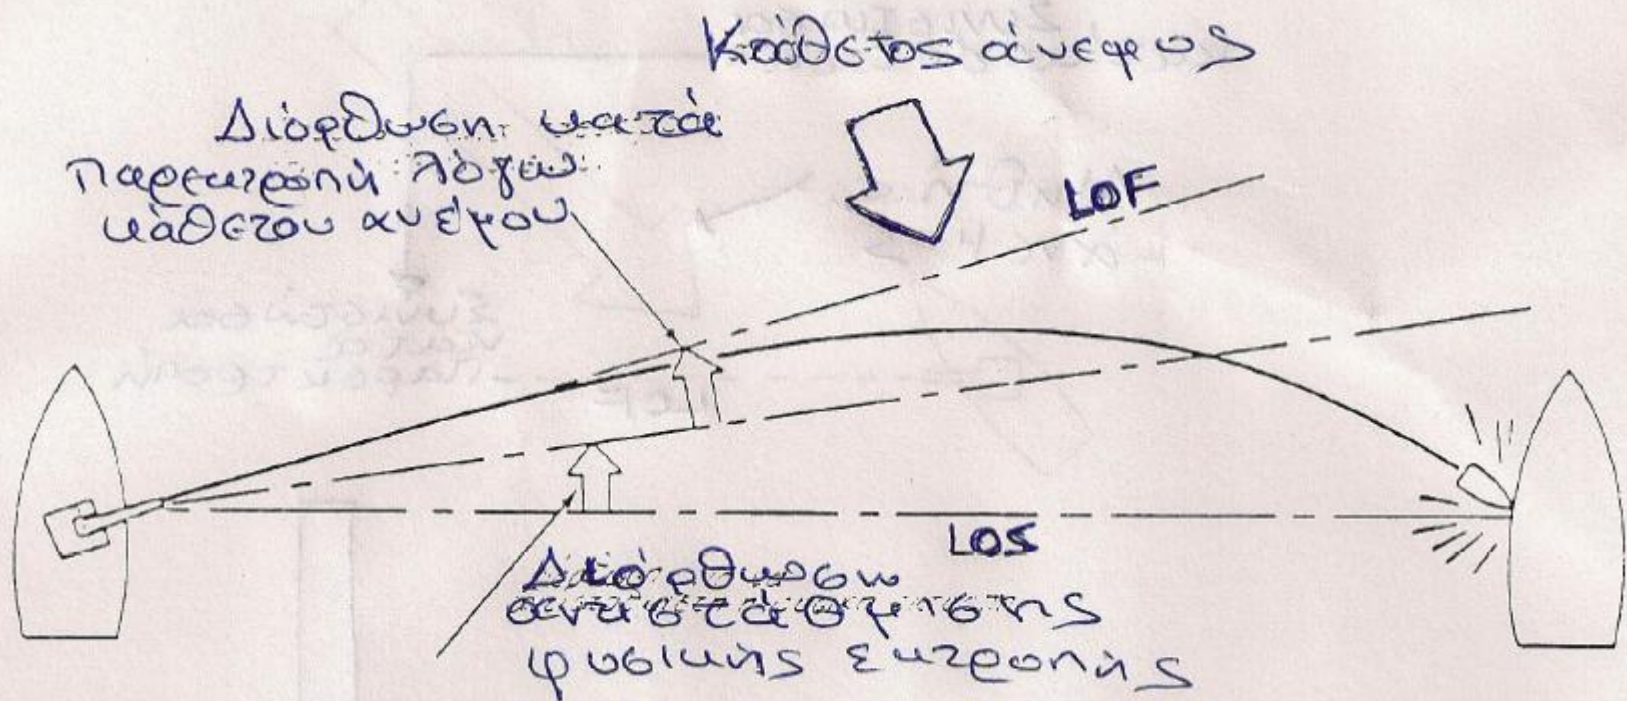 Κάθετος άνεμος
Διόρθωση κατά
παρεκτροπή λόγω
κάθετου ανέμου
LOF
LOS
Διόρθωση
αντιστάθμισης
φυσικής εκτροπής